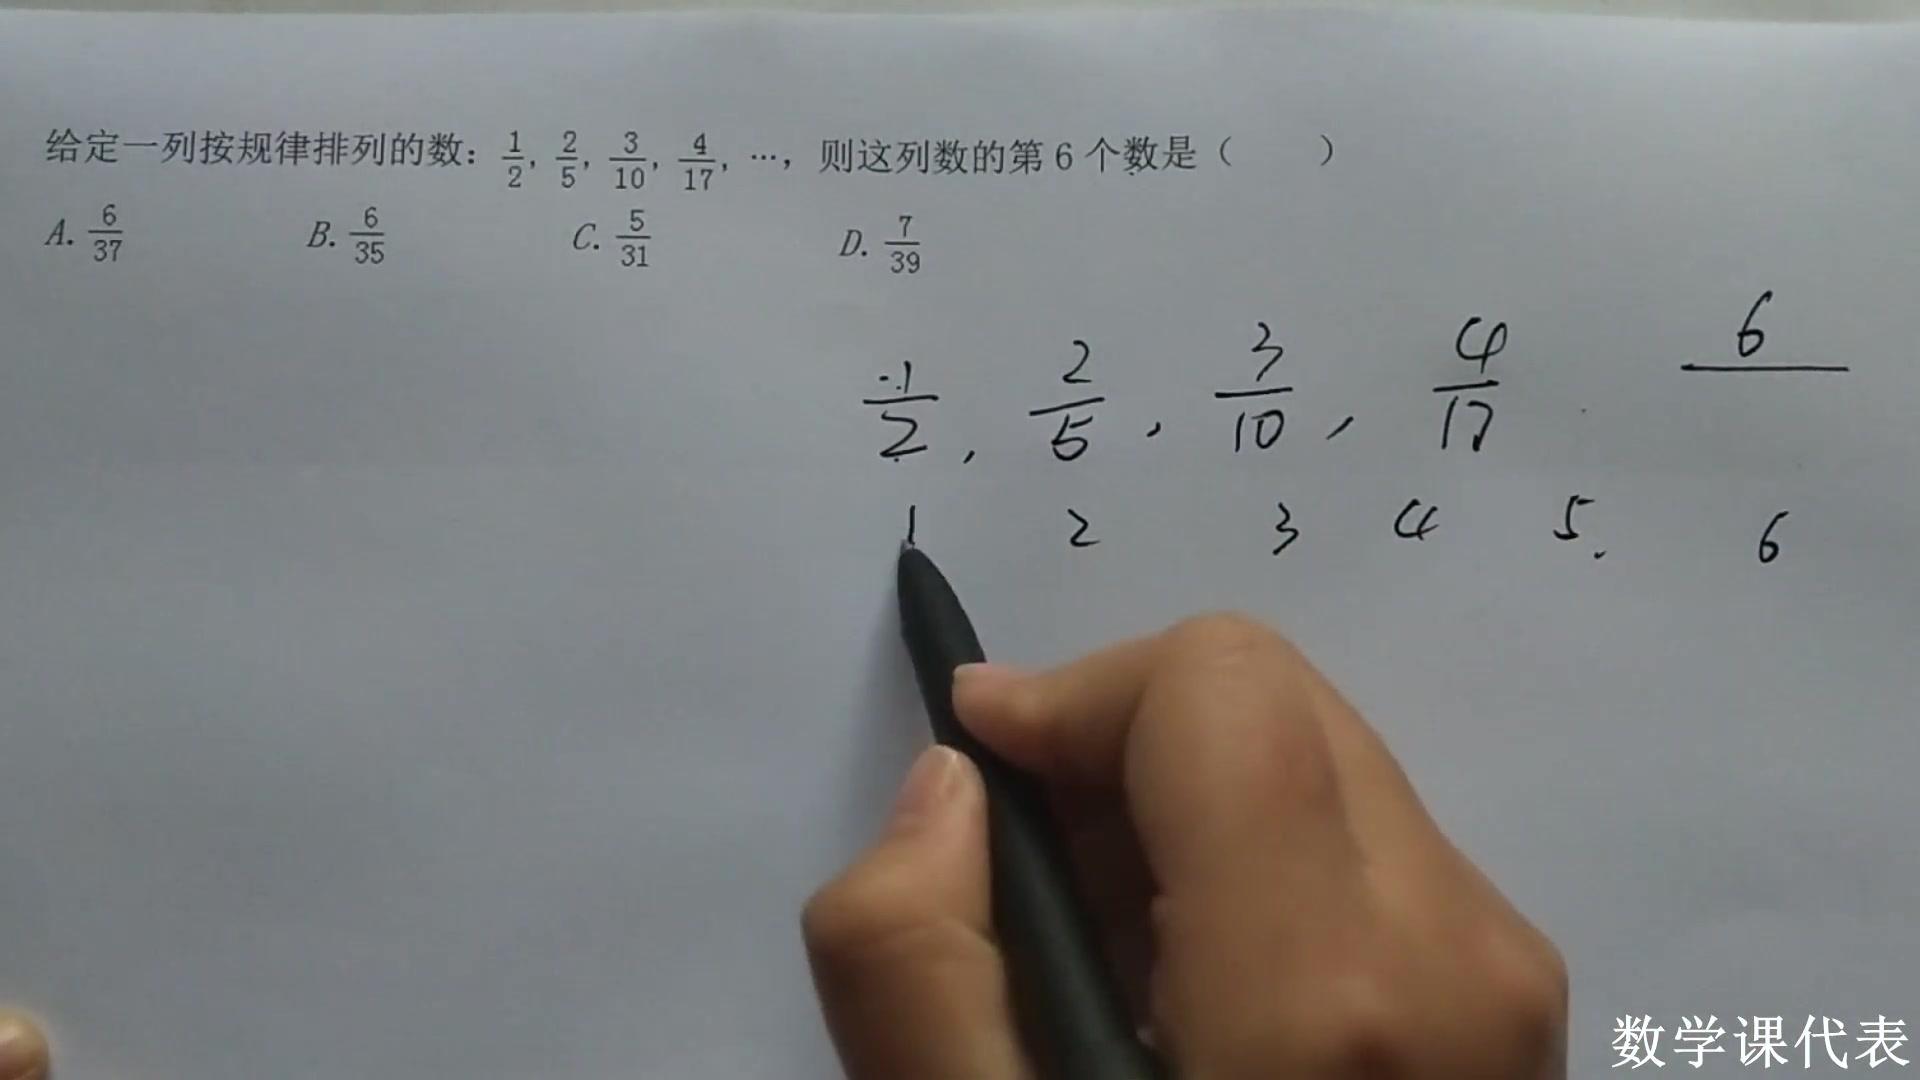 给定一列按规律排列的数：1/2, 2/5, 3/10, 4/17, …, 则这列数的第 6 个数是（　　）
A. 6/37 B. 6/35 C. 5/31 D. 7/39
1/2, 2/5, 3/10, 4/17 6/
1 2 3 4 5. 6
数学课代表